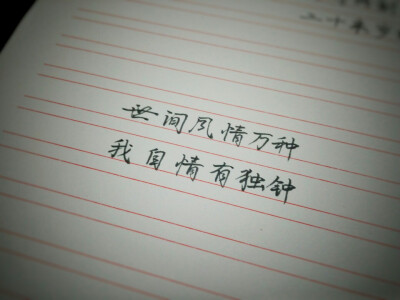 世间风情万种
我自情有独钟